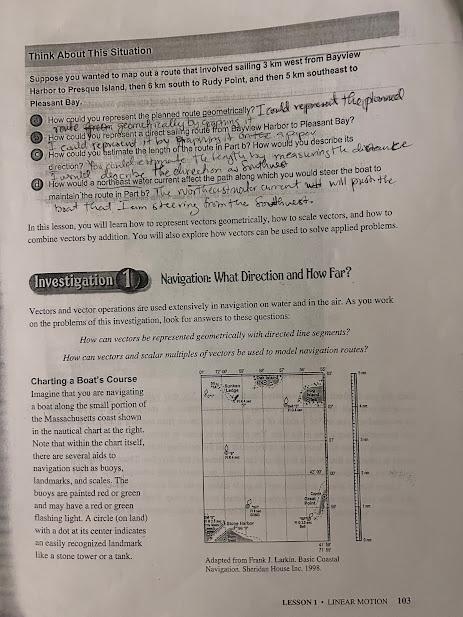 Think About This Situation
Suppose you wanted to map out a route that involved sailing 3 km west from Bayview
Harbor to Presque Island, then 6 km south to Rudy Point, and then 5 km southeast to
Pleasant Bay.
a How could you represent the planned route geometrically? I could represent the planned
route geometrically by graphing it.
b How could you represent a direct sailing route from Bayview Harbor to Pleasant Bay?
I could represent it by graphing it on a paper
c How could you estimate the length of the route in Part b? How would you describe its
direction? You could estimate the length by measuring the distance
I would describe the direction as Southwest
d How would a northeast water current affect the path along which you would steer the boat to
maintain the route in Part b? The northeast water current will push the
boat that I am steering from the Southwest.
In this lesson, you will learn how to represent vectors geometrically, how to scale vectors, and how to
combine vectors by addition. You will also explore how vectors can be used to solve applied problems.
Investigation 1 Navigation: What Direction and How Far?
Vectors and vector operations are used extensively in navigation on water and in the air. As you work
on the problems of this investigation, look for answers to these questions:
How can vectors be represented geometrically with directed line segments?
How can vectors and scalar multiples of vectors be used to model navigation routes?
Charting a Boat's Course
Imagine that you are navigating
a boat along the small portion of
the Massachusetts coast shown
in the nautical chart at the right.
Note that within the chart itself,
there are several aids to
navigation such as buoys,
landmarks, and scales. The
buoys are painted red or green
and may have a red or green
flashing light. A circle (on land)
with a dot at its center indicates
an easily recognized landmark
like a stone tower or a tank.
Sunken
Ledge
Stone Harbor
Point
Adapted from Frank J. Larkin, Basic Coastal
Navigation, Sheridan House Inc. 1998.
LESSON 1 • LINEAR MOTION 103